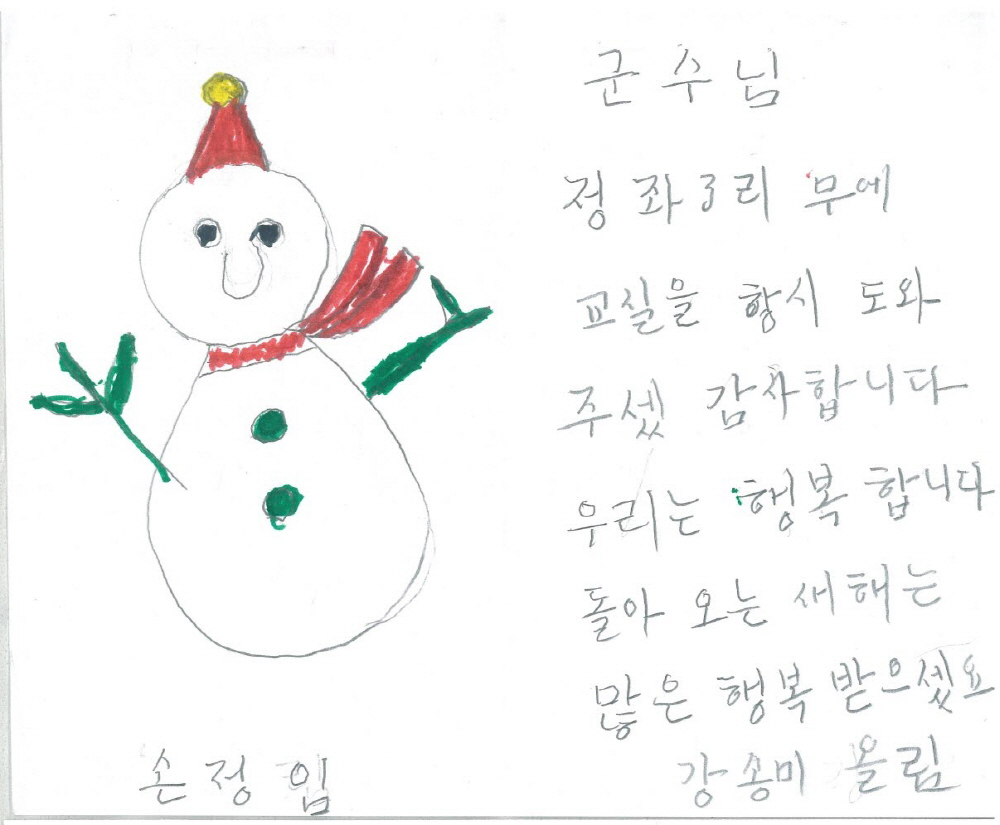 군수님
정좌3리 무에
교실을 항시 도와
주셌 감사합니다
우리는 행복 합니다
돌아 오는 새해는
많은 행복 받으셌요
강송미 올림
손정임